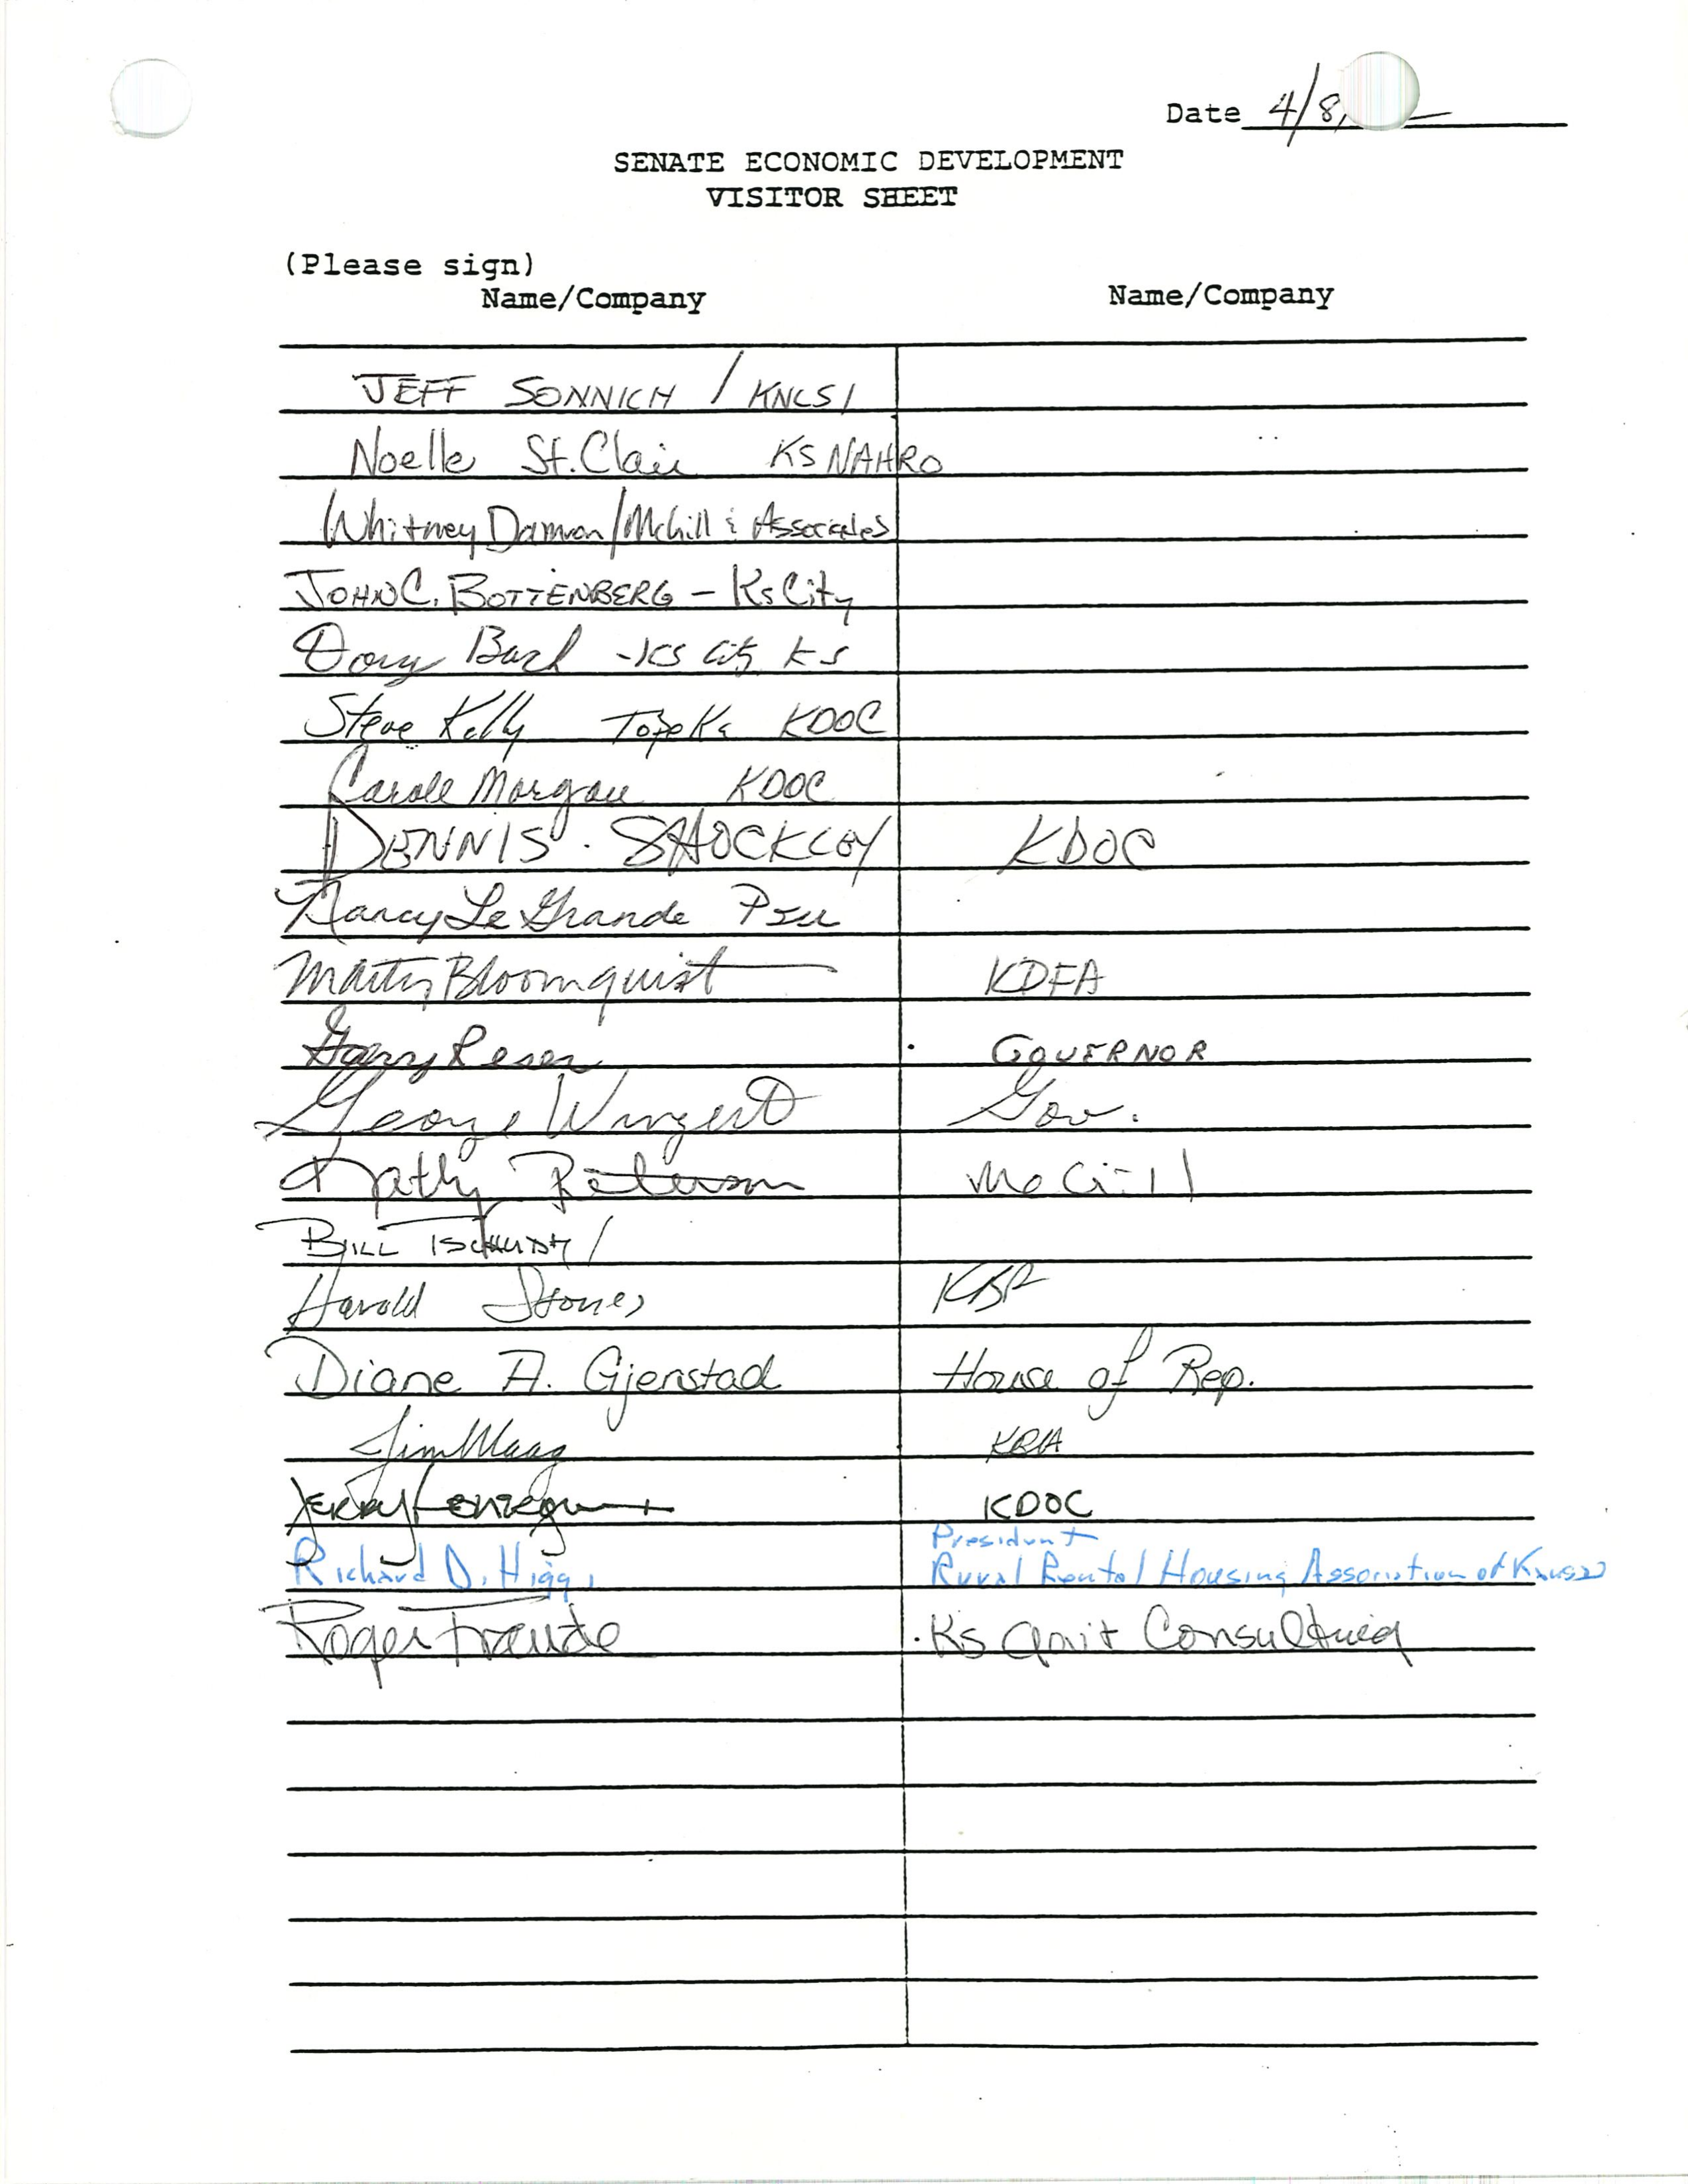 Date 4/8,
SENATE ECONOMIC DEVELOPMENT
VISITOR SHEET
(Please sign)
Name/Company Name/Company
JEFF SONNICH / KNLSI
Noelle St. Clair KS NAHRO
Whitney Damron/McGill & Associates
JOHN C. BOTTENBERG - Ks City
Doug Bach - KS City KS
Steve Kelly Topeka KDOC
Carole Morgan KDOC
DENNIS SHOCKLEY KDOC
Nancy Le Grande PSU
Marty Bloomquist KDFA
Garry Reser GOVERNOR
George Wingert Gov.
Kathy Peterson McGill
BILL
Harold Stones KBA
Diane A. Gjerstad House of Rep.
Jim Maag KBA
JERRY KDOC
President
Richard D. Higgs Rural Rental Housing Association of Kansas
Roger Ks Consulting